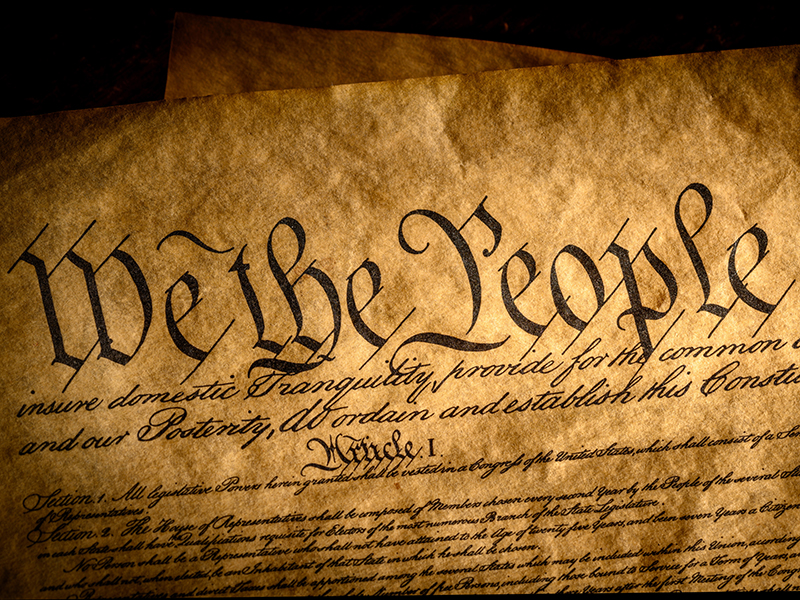 We the People
insure domestic Tranquility, provide for the common
and our Posterity, do ordain and establish this Constitu
Article. I.
Section. 1. All legislative Powers herein granted shall be vested in a Congress of the United States, which shall consist of a Sen
of Representatives
Section. 2. The House of Representatives shall be composed of Members chosen every second Year by the People of the several States
in each State shall have the Qualifications requisite for Electors of the most numerous Branch of the State Legislature.
No Person shall be a Representative who shall not have attained to the Age of twenty five Years, and been seven Years a Citizen
and who shall not, when elected, be an Inhabitant of that State in which he shall be chosen.
Representatives and direct Taxes shall be apportioned among the several States which may be included within this Union, according
Number of free Persons, including those bound to Service for a Term of Years, an
Years after the first Meeting of the Congress